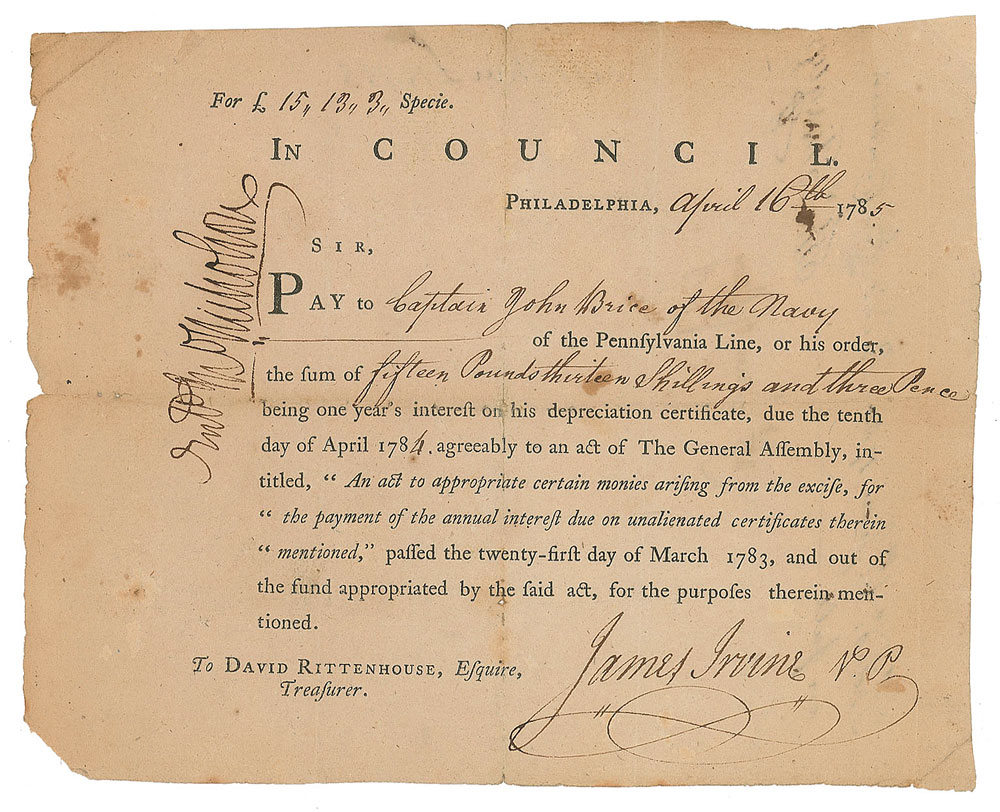 For £ 15,, 13,, 3,, Specie.
IN COUNCIL.
PHILADELPHIA, April 16th 1785
SIR,
PAY to Captain John Brice of the Navy
of the Pennſylvania Line, or his order,
the ſum of fifteen Pounds thirteen Shillings and three Pence
being one year's intereſt on his depreciation certificate, due the tenth
day of April 1784. agreeably to an act of The General Aſſembly, in-
titled, “ An act to appropriate certain monies ariſing from the exciſe, for
“ the payment of the annual intereſt due on unalienated certificates therein
“ mentioned,” paſſed the twenty-firſt day of March 1783, and out of
the fund appropriated by the ſaid act, for the purpoſes therein men-
tioned.
To DAVID RITTENHOUSE, Eſquire,
Treaſurer.
James Irvine V. P.
Jno Nicholson